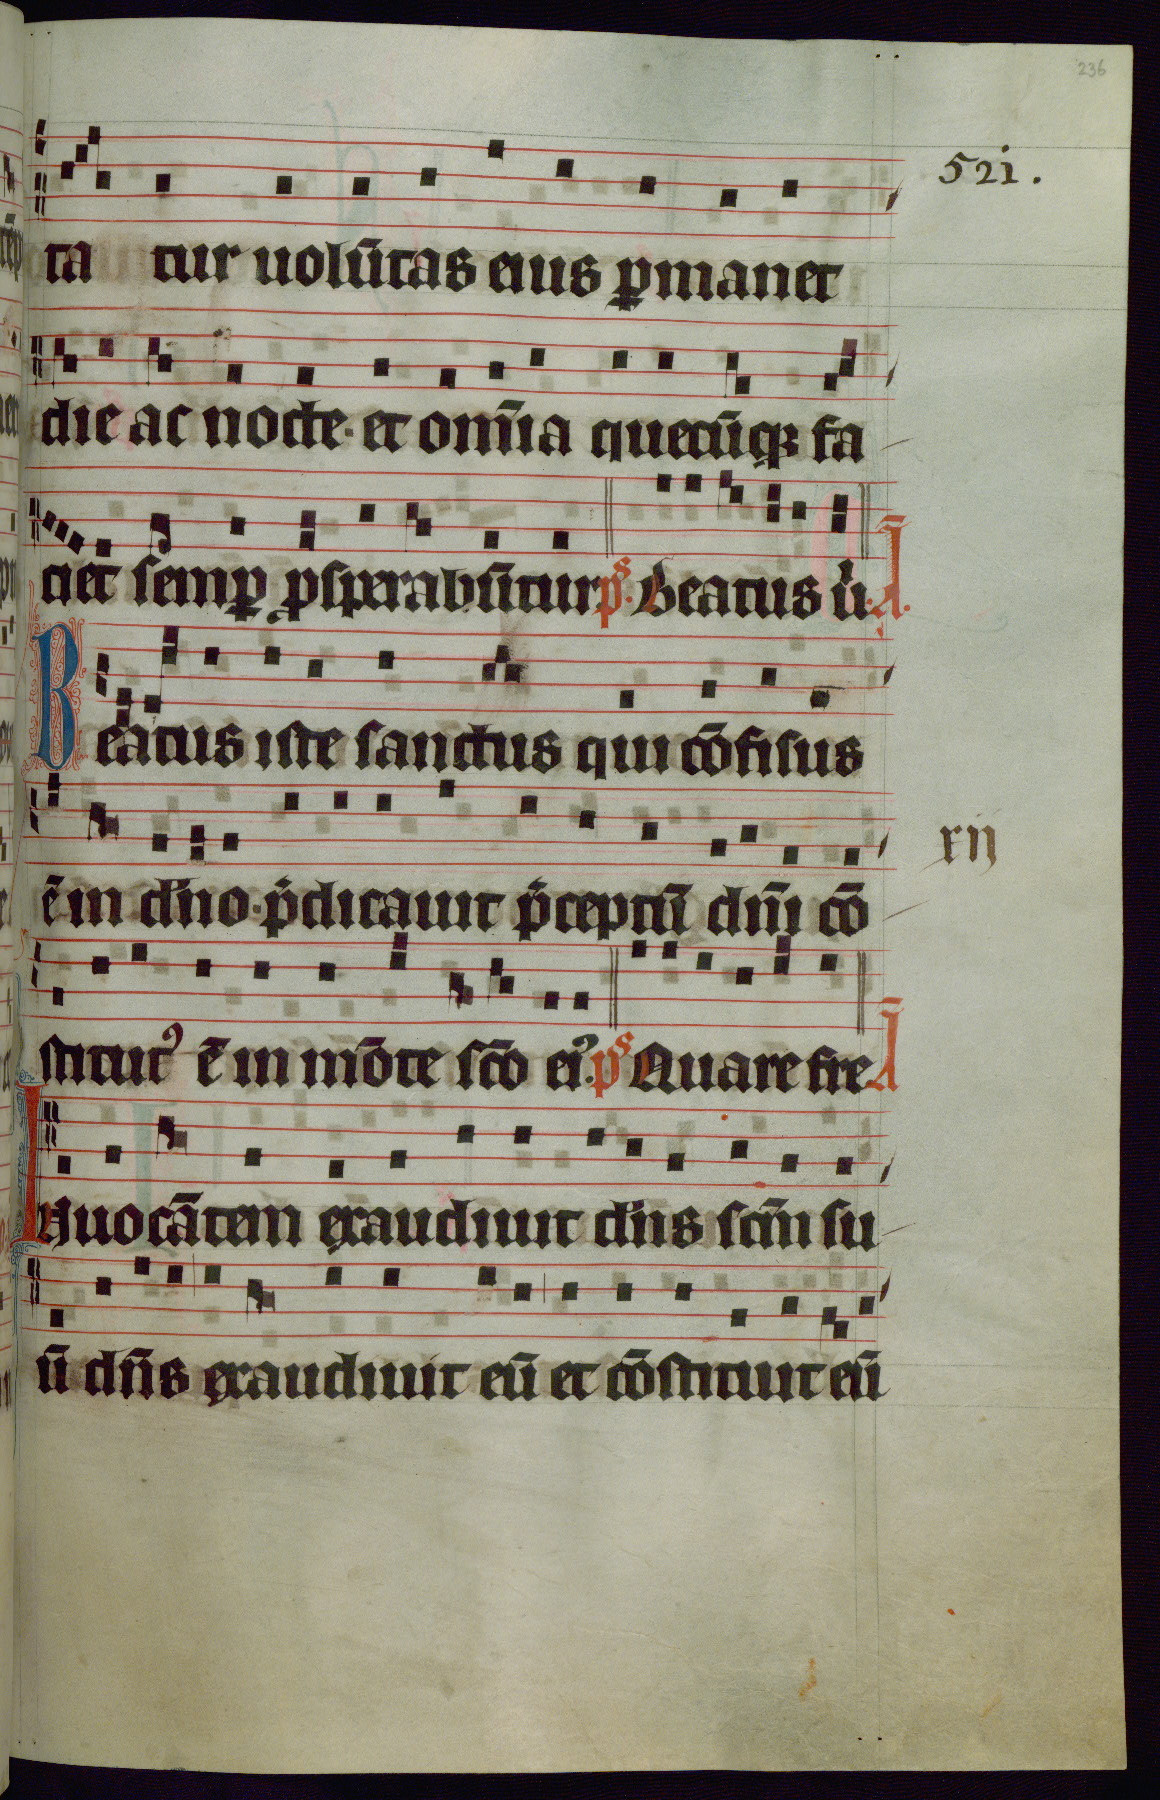 236
521.
ta tur uolũtas eius ꝑmanet
die ac nocte· et om̃ia quecũqꝫ fa
ciet semꝑ ꝓsperabũtur p̃s. Beatus ú. A.
Beatus iste sanctus qui cõfisus
ẽ in dño· p̃dicauit p̃ceptũ dñi cõ
xij
stitutꝰ ẽ in mõte sc̃o eiꝰ. p̃s Quare fre A
Inuocãtem exaudiuit dñs scm̃ su
ũ dñs exaudiuit eũ et cõstituit eũ